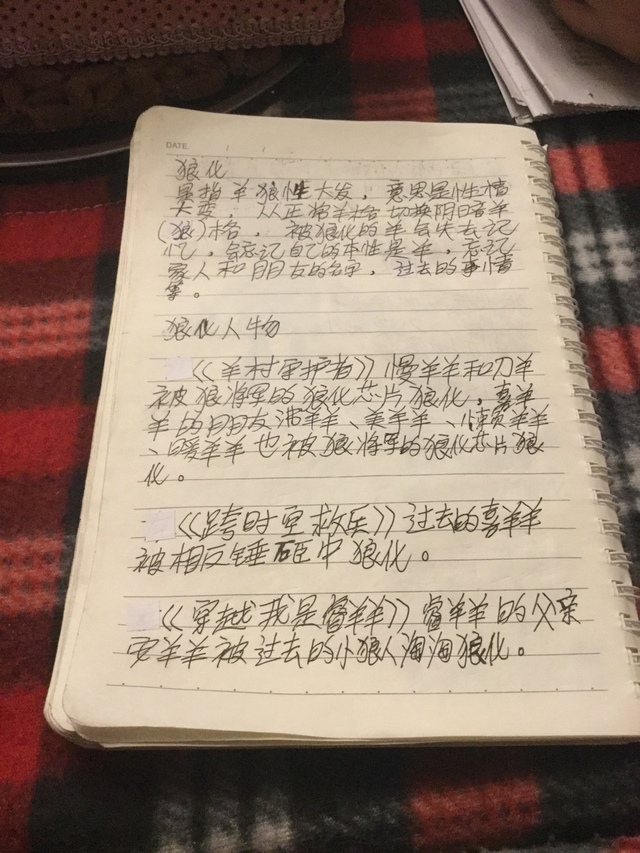 DATE / /
狼化
是指羊狼性大发，意思是性情
大变，从正常羊格切换阴暗羊
(狼)格，被狼化的羊会失去记
忆，会忘记自己的本性是羊，忘记
家人和朋友的名字，过去的事情
等。
狼化人物
《羊村守护者》慢羊羊和刀羊
被狼将军的狼化芯片狼化，喜羊
羊的朋友沸羊羊、美羊羊、懒羊羊
、暖羊羊也被狼将军的狼化芯片狼
化。
《跨时空救兵》过去的喜羊羊
被相反锤砸中狼化。
《穿越我是睿羊羊》睿羊羊的父亲
安羊羊被过去的小狼人海海狼化。